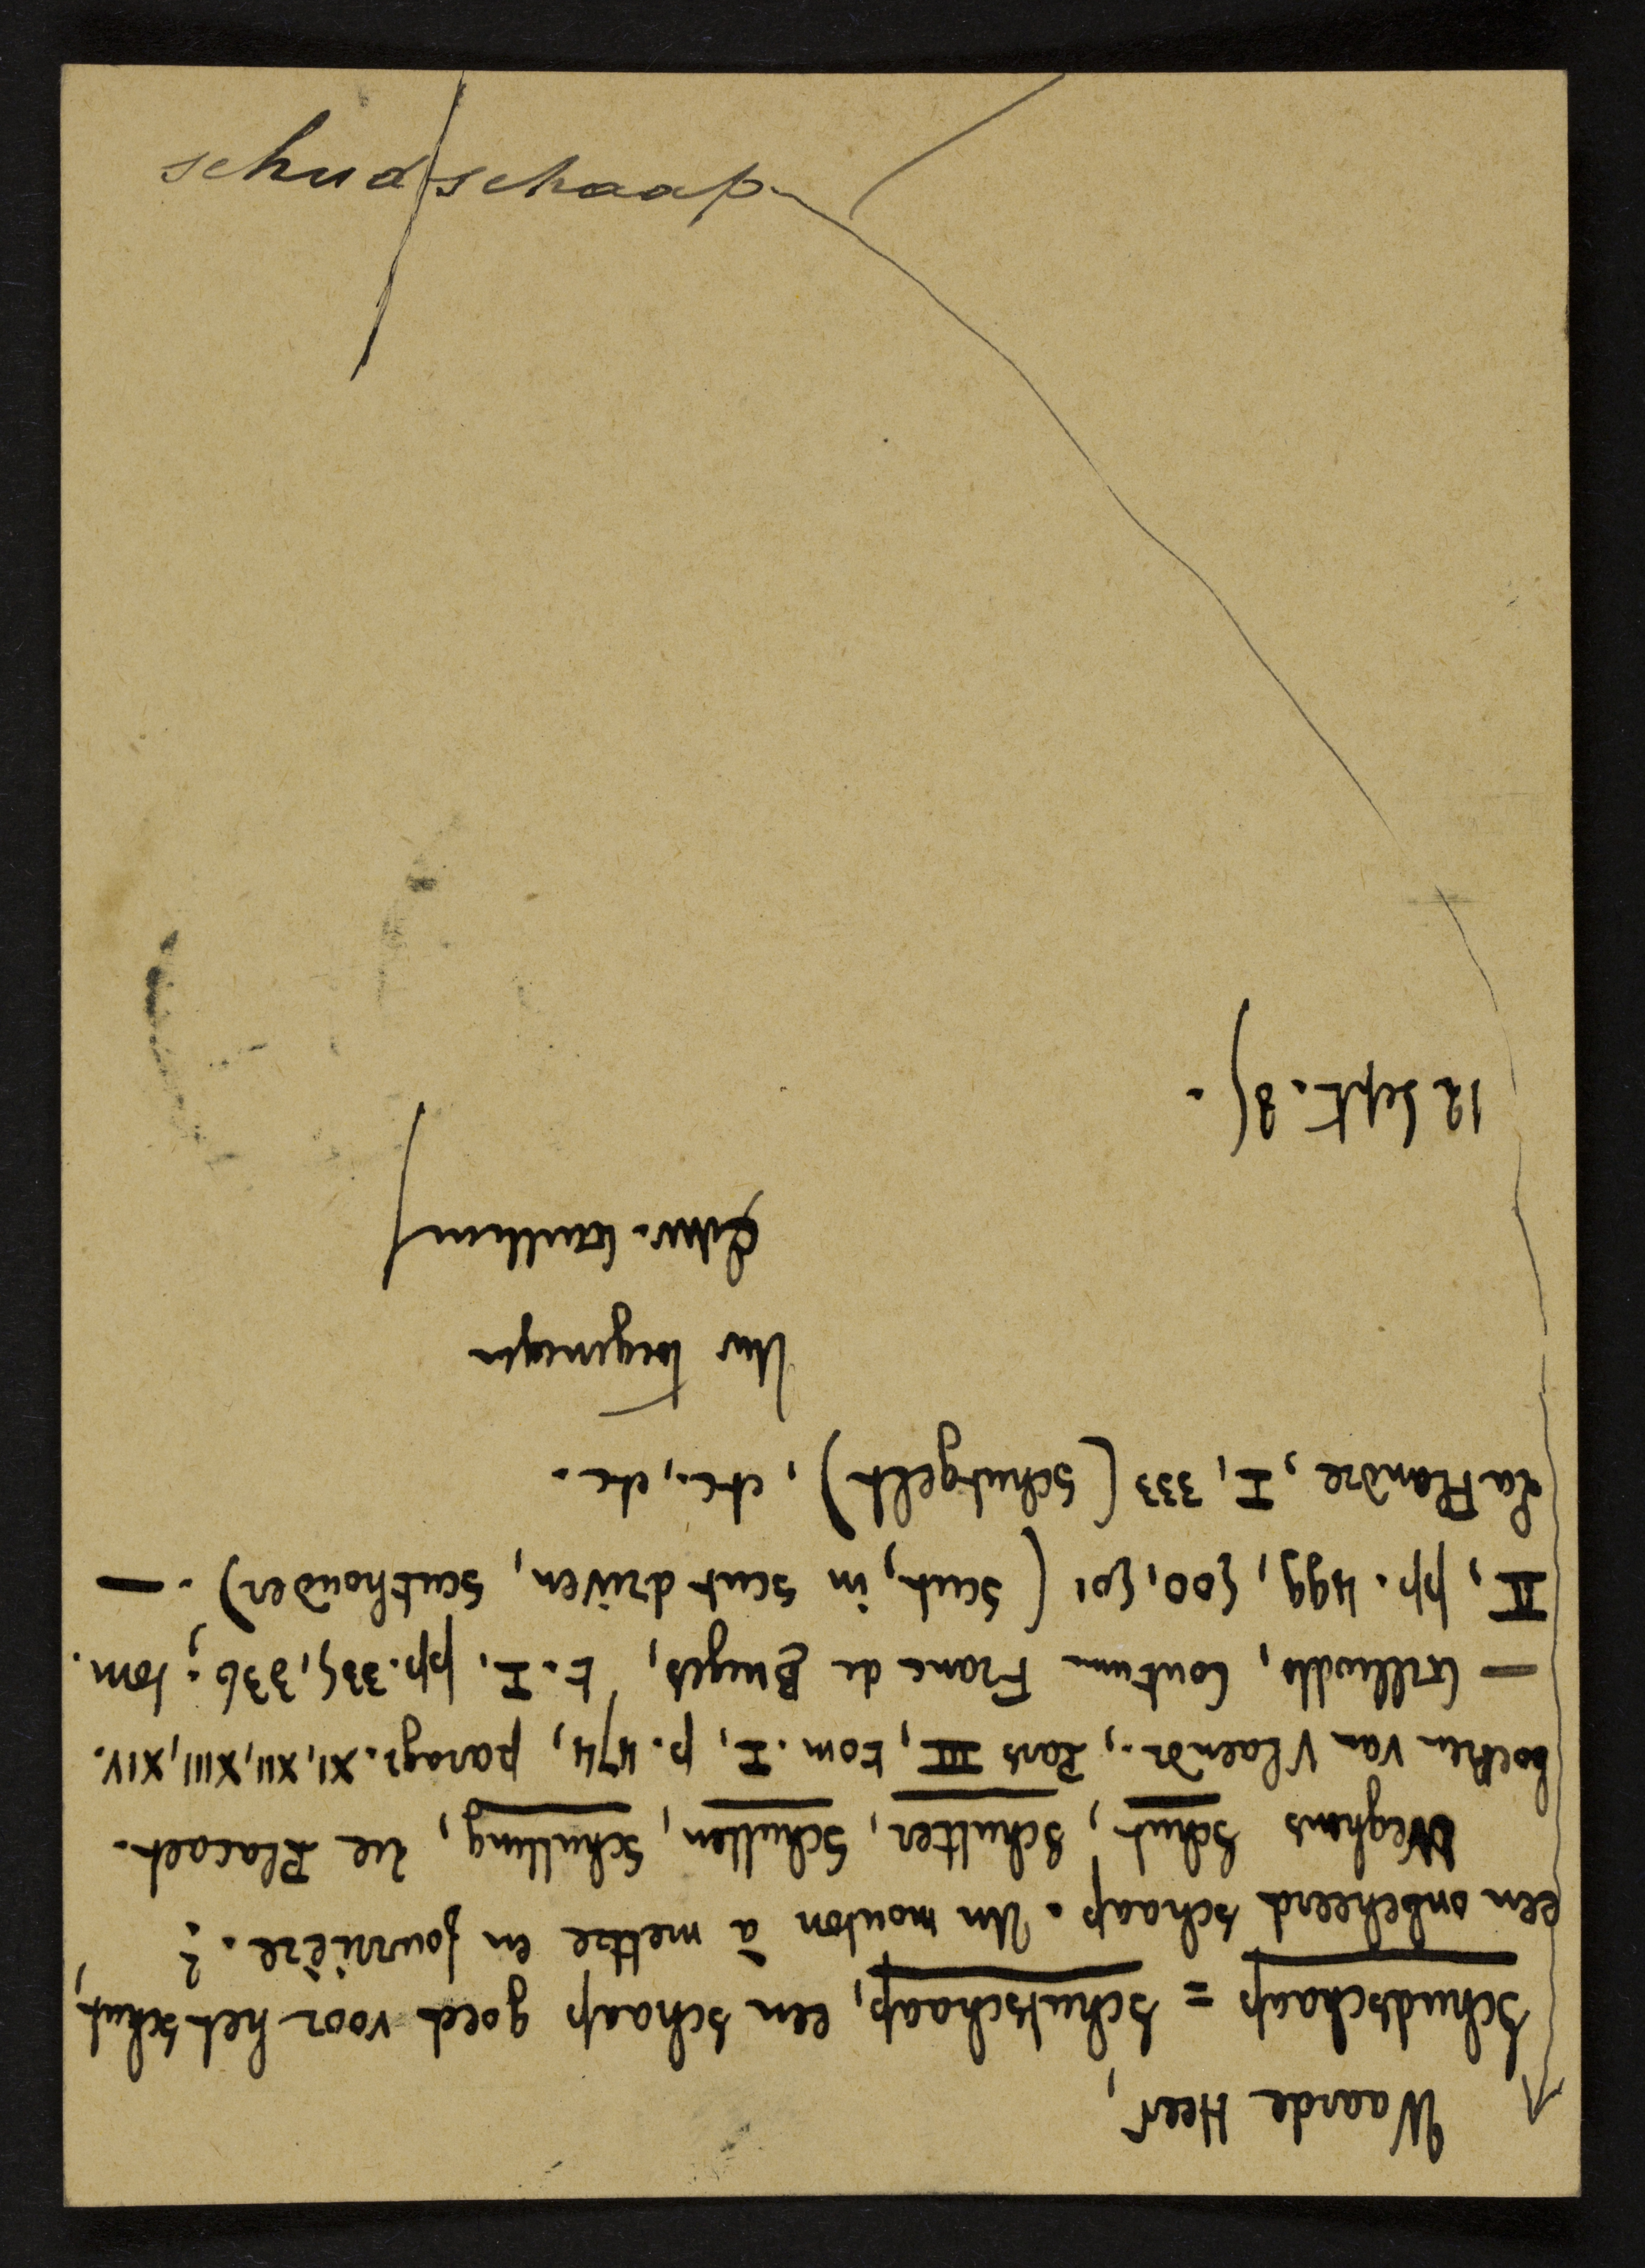 schudschaap
Waarde Heer,
Schudschaap = schutschaap, een schaap goed voor het schut,
een onbeheerd schaap. Un mouton à mettre en fourrière.?
Weghens schut, schutter, schutten, schutting, zie Placaet-
boeken van Vlaendr., Pars III, tom. I, p. 474, paragr. XI, XII, XIII, XIV.
— Gilliodts, Coutum Franc de Bruges, t. I, pp. 335, 336; tom.
II, pp. 499, 500, 501 (scut, in scut driven, scuthouder). —
La Flandre, I, 333 (schutgelt), etc., etc.
Uw toegenegen
Edw. Gailliard
12 Sept. 85.